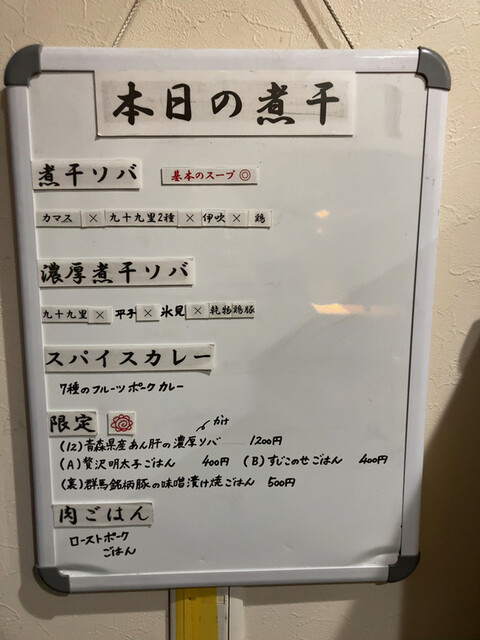 本日の煮干
煮干ソバ 基本のスープ◎
カマス × 九十九里2種 × 伊吹 × 鶏
濃厚煮干ソバ
九十九里 × 平子 × 氷見 × 乾物鶏豚
スパイスカレー
7種のフルーツポークカレー
限定
かけ
(12)青森県産あん肝の濃厚ソバ 1200円
(A)贅沢明太子ごはん 400円 (B)すじこのせごはん 400円
(裏)群馬銘柄豚の味噌漬け焼ごはん 500円
肉ごはん
ローストポーク
ごはん